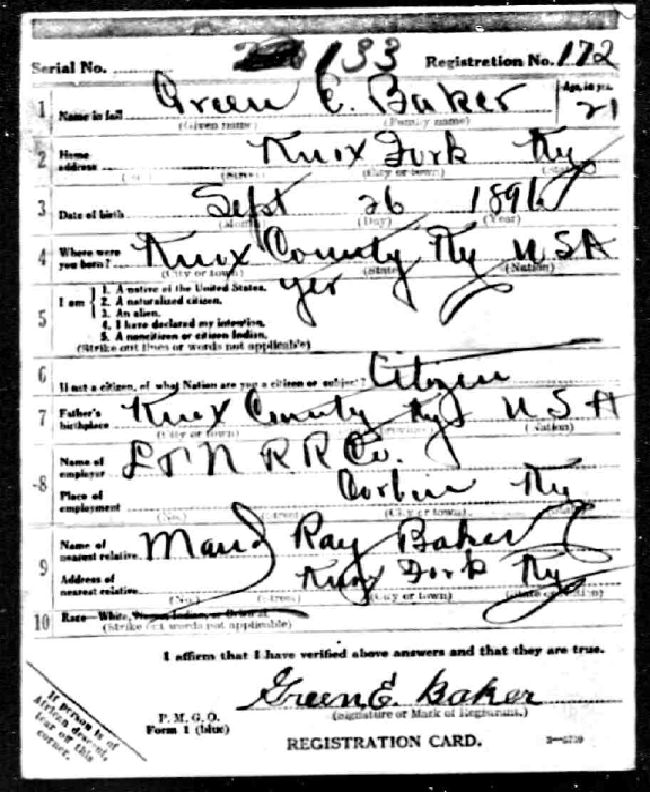 Serial No. 133 Registration No. 172
1 Name in full Green E. Baker Age, in yrs. 21
(Given name) (Family name)
2 Home address Knox Fork Ky
(No.) (Street) (City or town) (State)
3 Date of birth Sept 26 1896
(Month) (Day) (Year)
4 Where were you born? Knox County Ky USA
(City or town) (State) (Nation)
yes
5 I am
1. A native of the United States.
2. A naturalized citizen.
3. An alien.
4. I have declared my intention.
5. A noncitizen or citizen Indian.
(Strike out lines or words not applicable)
6 If not a citizen, of what Nation are you a citizen or subject? Citizen
7 Father's birthplace Knox County Ky USA
(City or town) (Province) (Nation)
8 Name of employer L & N R R Co.
Place of employment Corbin Ky
(No.) (Street) (City or town) (State)
9 Name of nearest relative Maud Ray Baker
Address of nearest relative Knox Fork Ky
(No.) (Street) (City or town) (State or Nation)
10 Race—White, Negro, Indian, or Oriental.
(Strike out words not applicable)
I affirm that I have verified above answers and that they are true.
Green E. Baker
(Signature or Mark of Registrant.)
P. M. G. O.
Form 1 (blue)
REGISTRATION CARD.
If person is of
African descent,
tear off this
corner.